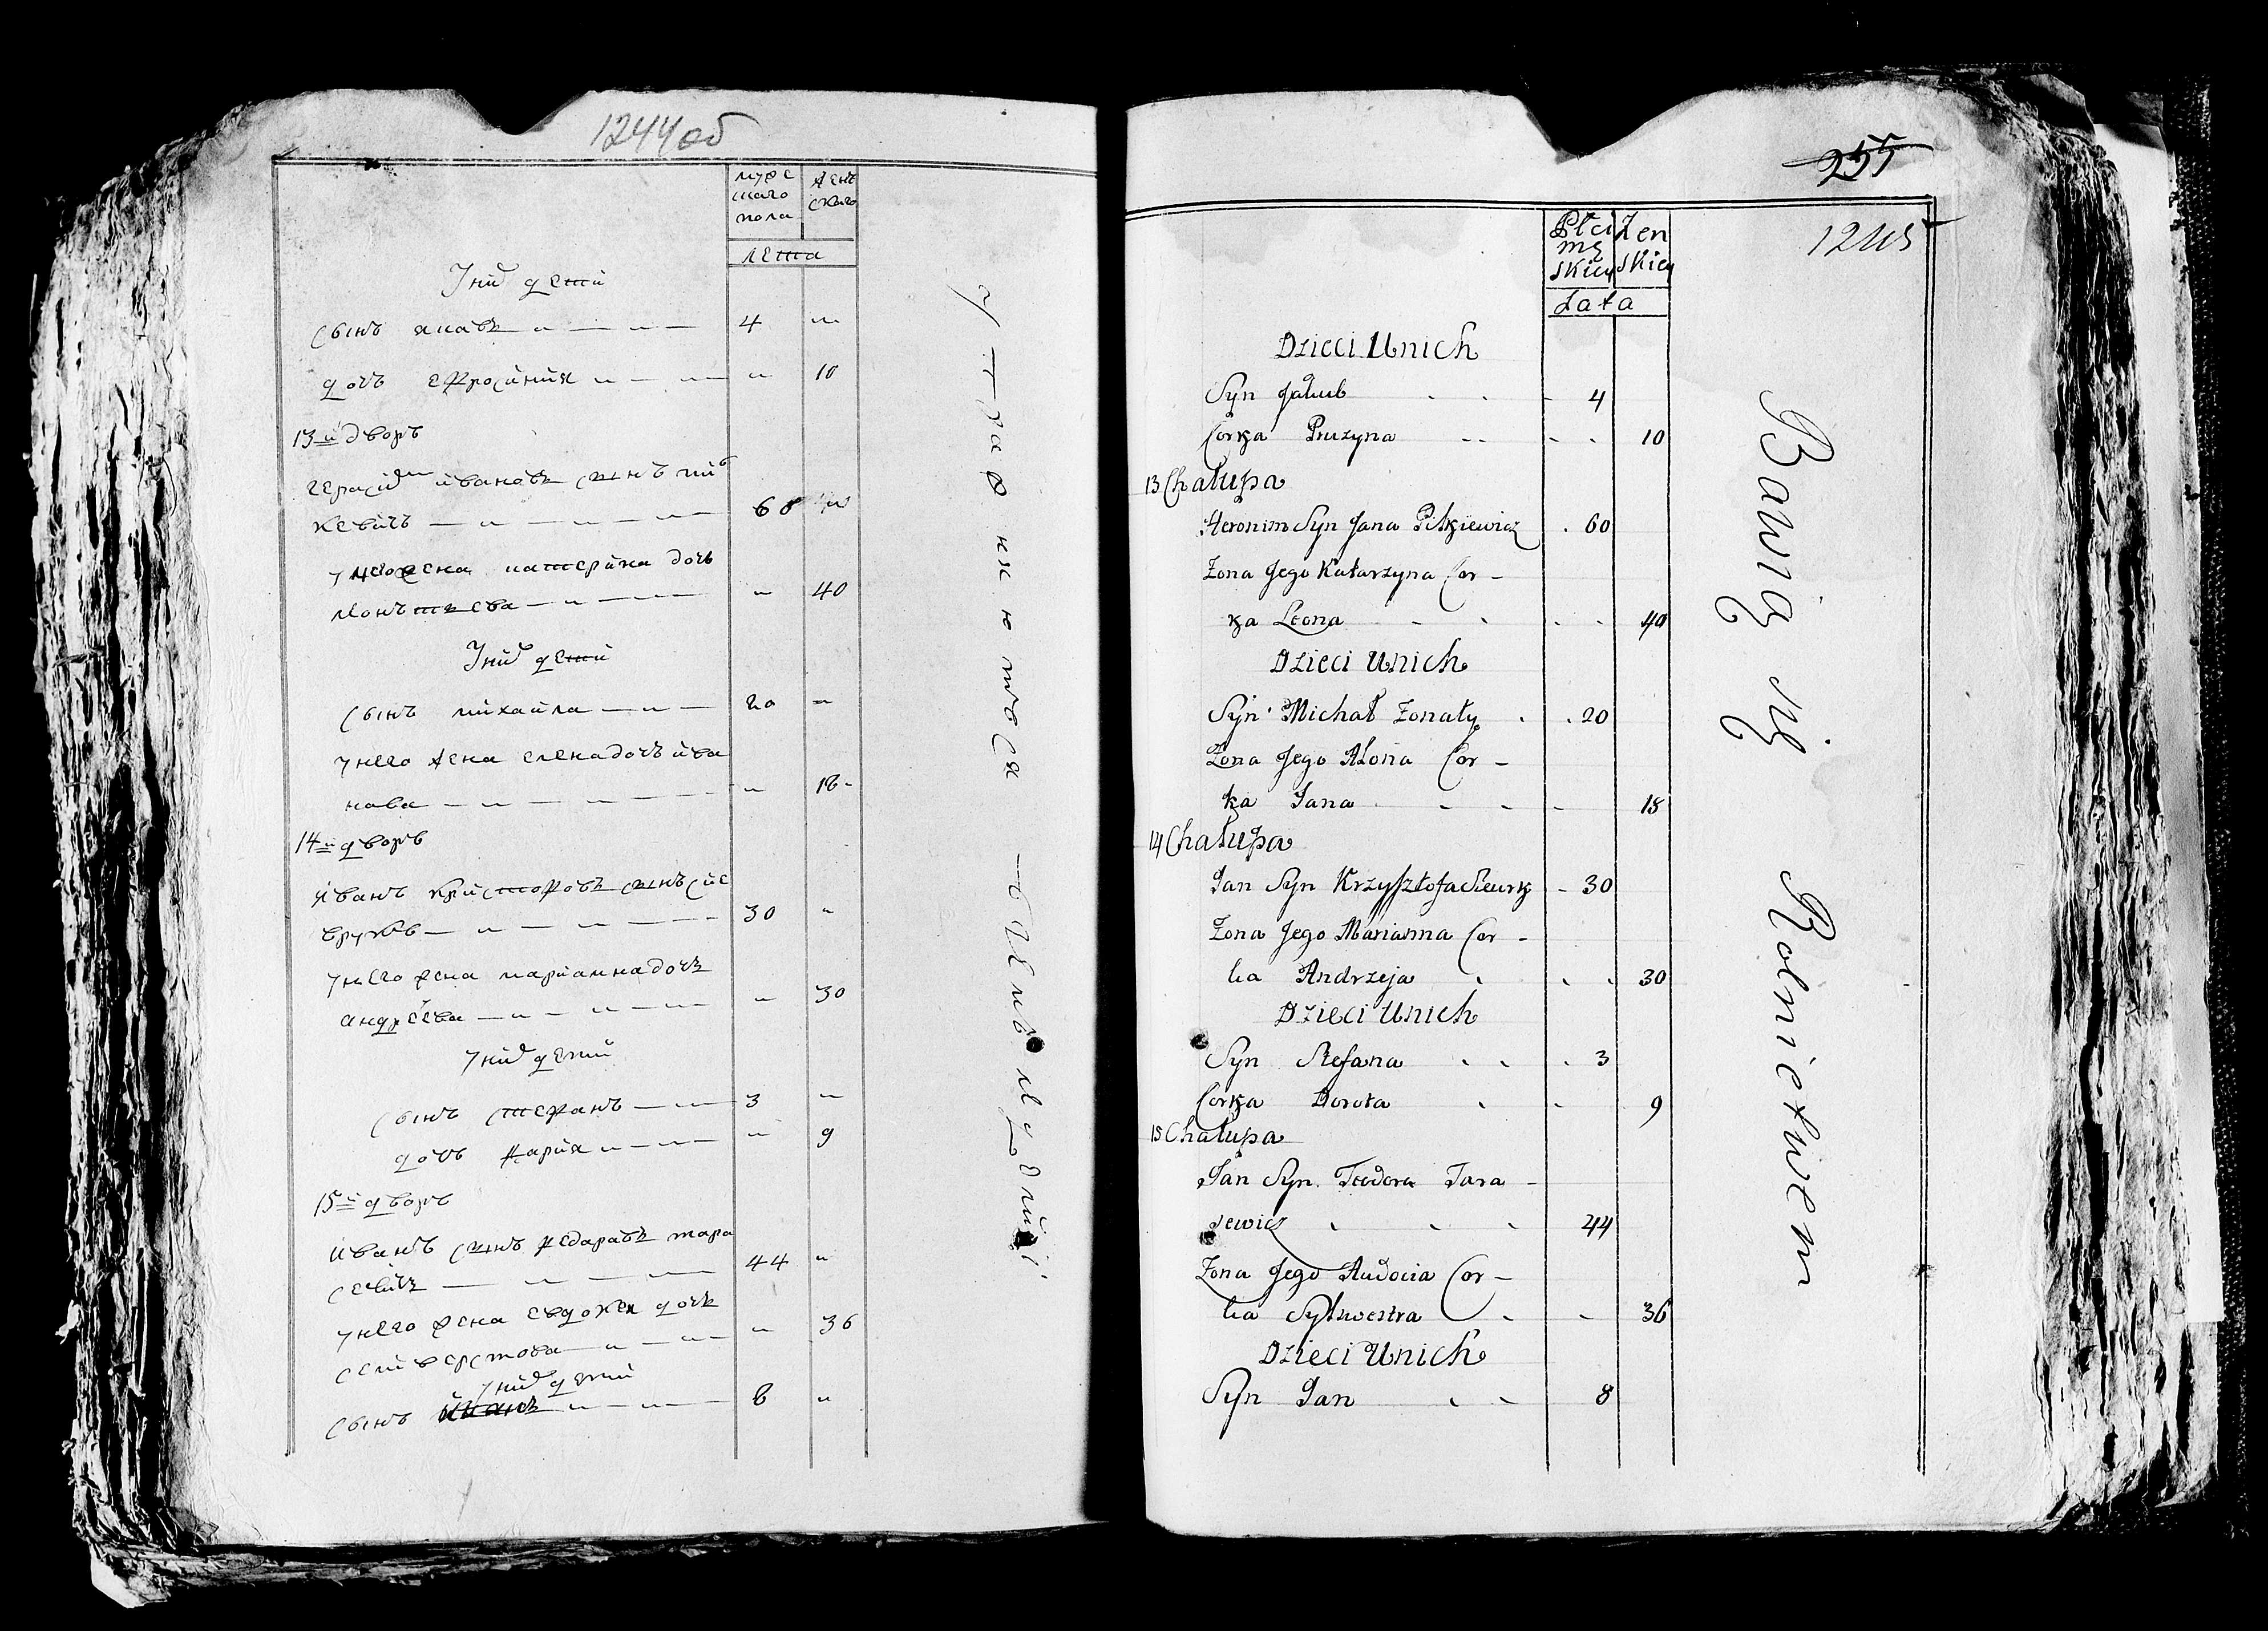 1244об
мужескаго пола
женскаго
лета
У них дети
сынъ якавъ 4 "
дочъ ефросиния " 10
13й дворъ
герасим ивановъ сынъ пит
кевичъ 60 "
у него жена катерина дочъ
" 40
У них дети
сынъ михайла 20 "
у него жена елена дочъ ива
нава " 18
14й дворъ
иванъ криштофовъ сынъ
30 "
у него жена марианна дочъ
андреева " 30
у них дети
сынъ стефанъ 3 "
дочъ дария " 9
15й дворъ
иванъ сынъ федаравъ тара
севичъ 44 "
у него жена евдокея дочъ
селиверстова " 36
у них дети
сынъ иванъ 8 "
упражняются
255
1245
Płci
mę
skiey
Żen
skiey
Lata
Dzieci Unich
Syn Jakub 4
Corka Pruzyna 10
13 Chałupa
Heronim Syn Jana Pitkiewicz 60
Zona Jego Katarzyna Cor-
ka Leona 40
Dzieci Unich
Syn Michał Zonaty 20
Zona Jego Alona Cor-
ka Jana 18
14 Chałupa
Jan Syn Krzysztofa Siewruk 30
Zona Jego Marianna Cor-
ka Andrzeja 30
Dzieci Unich
Syn Stefana 3
Corka Dorota 9
15 Chałupa
Jan Syn Teodora Tara-
sewicz 44
Zona Jego Audocia Cor-
ka Sylwestra 36
Dzieci Unich
Syn Jan 8
Bawią się Rolnictwem